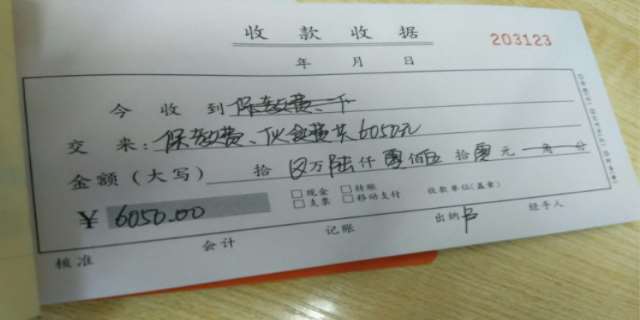 收款收据 203123
年 月 日
今收到 保教费、
交来：保教费、伙食费共6050元
金额（大写） 拾 万陆仟零佰伍拾零元 角 分
¥ 6050.00 □现金 □转账 □支票 □移动支付 收款单位（盖章）
核准 会计 记账 出纳 经手人